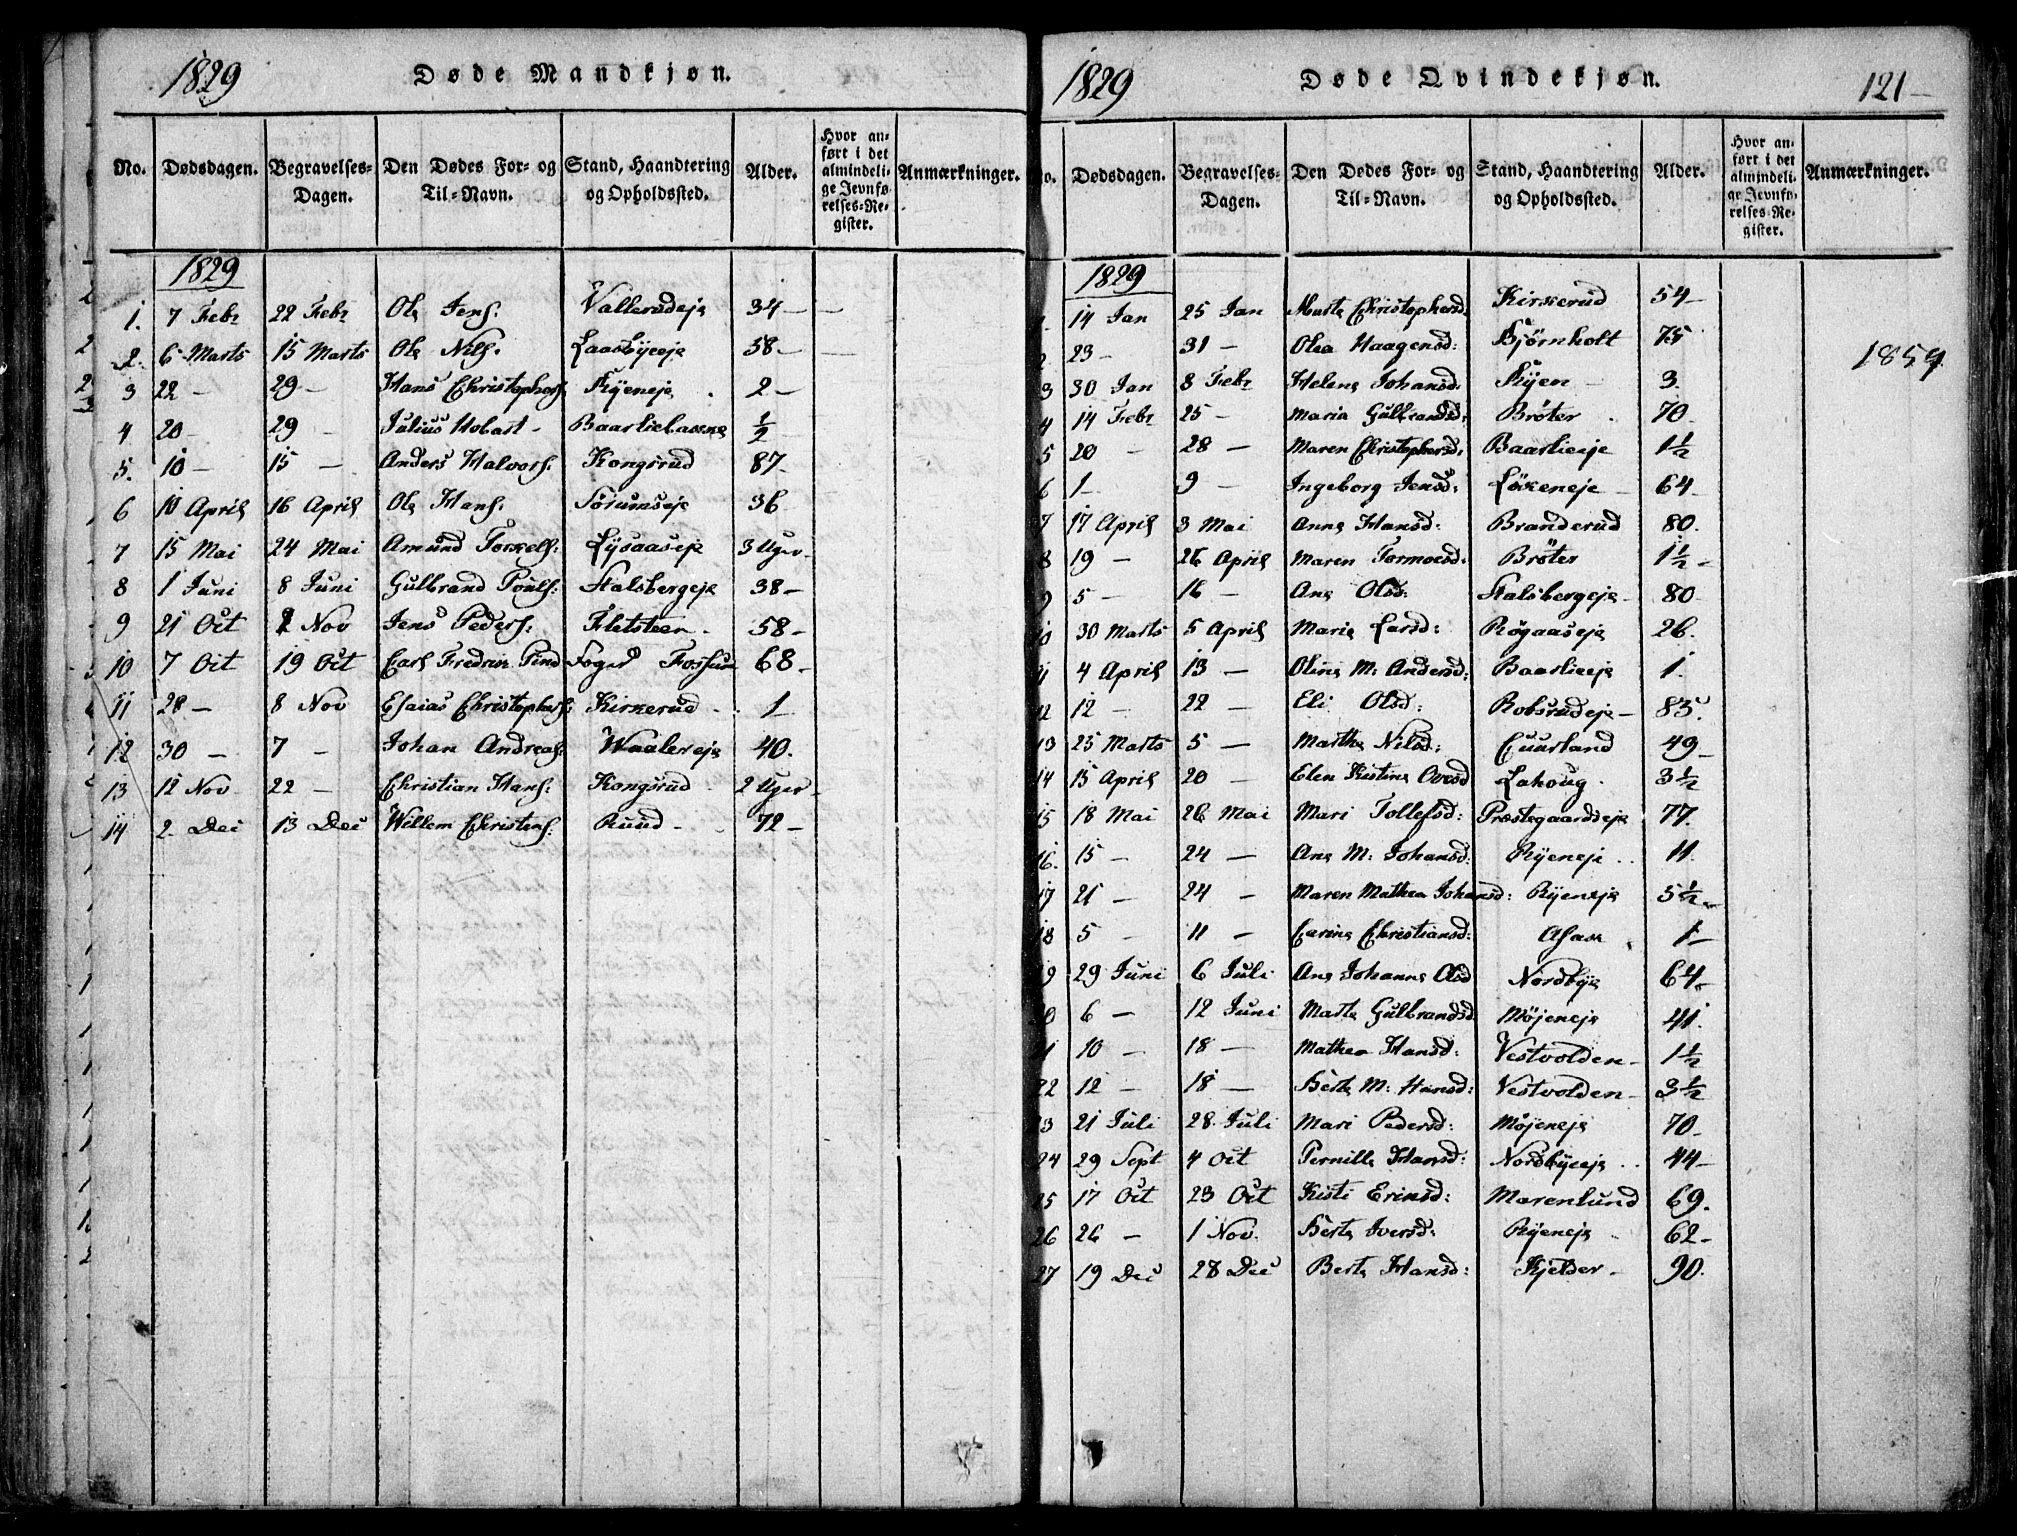 1829 Døde Mandkjøn.
No. Dødsdagen. Begravelses-Dagen. Den Dødes For- og Til-Navn. Stand, Haandtering og Opholdssted. Alder. Hvor anført i det almindelige Jevnførelses-Register. Anmærkninger.
1829
1. 7 Febr 22 Febr Ole Jens: Vallerudeje 34 —
2. 6 Marts 15 Marts Ole Nils: Laasbyeeje 58 —
3 22 — 29 — Hans Christophers: Ryeneje 2 —
4 20 — 29 — Julius Hobart — Baarlie ½
5. 10 — 15 — Anders Halvors: Kongsrud 87 —
6 10 April 16 April Ole Hans: Sørumseje 36
7 15 Mai 24 Mai Amund Torkels: Lysaaseje 3 Uger —
8 1 Juni 8 Juni Gulbrand Pouls: Stalsbergeje 38 —
9 21 Oct Nov Jens Peders: Fletsteen 58 —
10 7 Oct 19 Oct Carl Fredrik Pind Foged Fossum 68 —
11 28 — 8 Nov Esaias Christophers: Kirkerud 1
12 30 — 7 — Johan Andreas: Waalereje 40.
13 12 Nov 22 — Christian Hans: Kongsrud 2 Uger —
14 2 Dec 13 Dec Willem Christens: Ruud — 72 —
1829 Døde Qvindekjøn. 121 —
No. Dødsdagen. Begravelses-Dagen. Den Dødes For- og Til-Navn. Stand, Haandtering og Opholdssted. Alder. Hvor anført i det almindelige Jevnførelses-Register. Anmærkninger.
1829
14 Jan 25 Jan Marte Christophersd: Kirkerud 54 —
2 23 — 31 — Olea Haagensd: Bjørnholt 75
1859.
3 30 Jan 8 Febr Helene Johansd: Ryen 3.
4 14 Febr 25 — Maria Gulbrandsd: Brøter 70
5 20 — 28 — Maren Christophersd: Baarlieeje 1½
6 1 — 9 — Ingeborg Jensd: Løkeneje — 64
7 17 April 3 Mai Anne Hansd: Branderud 80.
8 19 — 26 April Maren Tormoesd: Brøter 1½ —
9 5 — 16 — Ane Olsd: Stalsbergeje — 80
10 30 Marts 5 April Marie Larsd: Røgaaseje 26.
11 4 April 13 — Oline M: Andersd: Baarlieeje 1.
12 12 — 22 — Eli Olsd: Robsrudeje — 85.
13 25 Marts 5 — Marthe Nilsd: Cuurland 49
14 15 April 20 — Elen Kistine Ovesd Lahoug 3½
15 18 Mai 26 Mai Mari Tollefsd: Præstegaardseje 77.
16. 15 — 24 — Ane M: Johansd: Ryeneje 11.
17 21 — 24 — Maren Mathea Johansd: Ryeneje 5½
18 5 — 11 — Carine Christiansd: Asak 1 —
19 29 Juni 6 Juli Ane Johanne Olsd Nordbye 64
20 6 — 12 Juni Marte Gulbrandsd Møjeneje 41.
21 10 — 18 — Mathea Hansd: Vestvolden — 1½
22 12 — 18 — Berte M: Hansd: Vestvolden — 3½
23 21 Juli 28 Juli Mari Pedersd: Møjeneje 70
24 29 Sept 4 Oct Pernille Hansd: Nordbyeeje 44 —
25 17 Oct 23 Oct Kisti Eriksd: Marenlund 69.
26 26 — 1 Nov. Berte Iversd: Ryeneje 62 —
27 19 Dec 28 Dec Berte Hansd: Kjelder — 90.